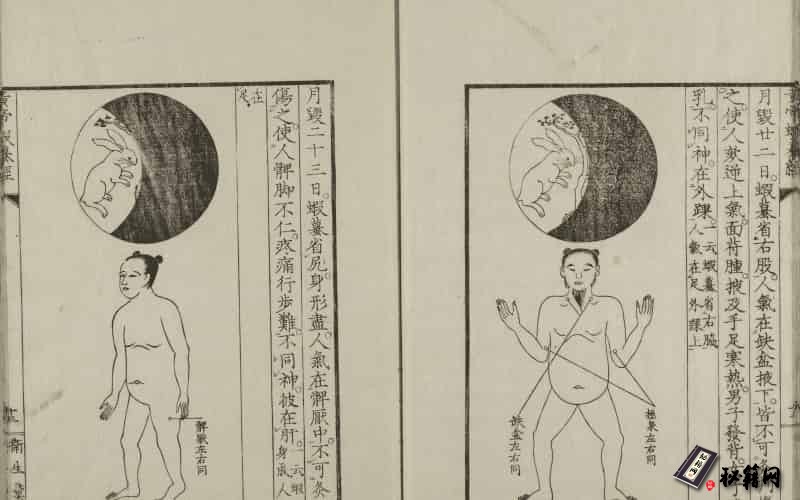 月毀廿二日。蝦蟇省右股。人氣在缺盆掖下。皆不可灸
之。使人欬逆上氣。面背腫。掖及手足寒熱。男子發背
乳。不同神。在外踝。一云蝦蟇省右脇
人氣在足外踝上
極泉左右同
缺盆左右同
月毀二十三日。蝦蟇省尻。身形盡。人氣在髀厭中。不可灸
傷之。使人髀脚不仁。疼痛行步難。不同神。彼在肝。一云蝦
身成人
在足
髀厭左右同
黃帝蝦蟇經
衛生
秘籍网